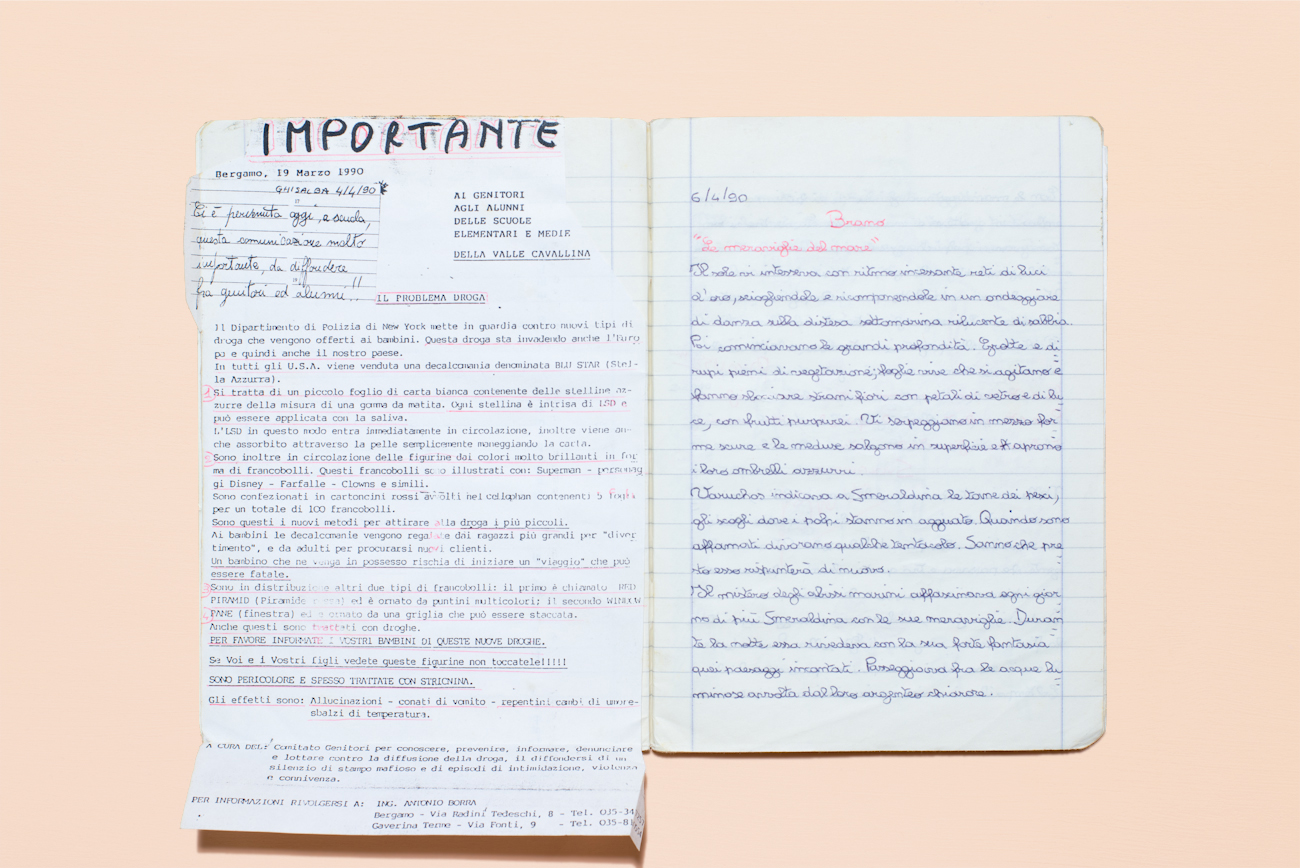 IMPORTANTE
Bergamo, 19 Marzo 1990
GHISALBA 4/4/90
Ci è pervenuta oggi, a scuola,
questa comunicazione molto
importante, da diffondere
fra genitori ed alunni!!
AI GENITORI
AGLI ALUNNI
DELLE SCUOLE
ELEMENTARI E MEDIE
DELLA VALLE CAVALLINA
IL PROBLEMA DROGA
Il Dipartimento di Polizia di New York mette in guardia contro nuovi tipi di
droga che vengono offerti ai bambini. Questa droga sta invadendo anche l'Euro
pa e quindi anche il nostro paese.
In tutti gli U.S.A. viene venduta una decalcomania denominata BLU STAR (Stel-
la Azzurra).
Si tratta di un piccolo foglio di carta bianca contenente delle stelline az-
zurre della misura di una gomma da matita. Ogni stellina è intrisa di LSD e
può essere applicata con la saliva.
L'LSD in questo modo entra immediatamente in circolazione, inoltre viene an-
che assorbito attraverso la pelle semplicemente maneggiando la carta.
Sono inoltre in circolazione delle figurine dai colori molto brillanti in for
ma di francobolli. Questi francobolli sono illustrati con: Superman - personag
gi Disney - Farfalle - Clowns e simili.
Sono confezionati in cartoncini rossi avvolti nel cellophan contenenti 5 fogli
per un totale di 100 francobolli.
Sono questi i nuovi metodi per attirare alla droga i più piccoli.
Ai bambini le decalcomanie vengono regalate dai ragazzi più grandi per "diver
timento", e da adulti per procurarsi nuovi clienti.
Un bambino che ne venga in possesso rischia di iniziare un "viaggio" che può
essere fatale.
Sono in distribuzione altri due tipi di francobolli: il primo è chiamato RED
PIRAMID (Piramide rossa) ed è ornato da puntini multicolori; il secondo WINDOW
PANE (finestra) ed è ornato da una griglia che può essere staccata.
Anche questi sono trattati con droghe.
PER FAVORE INFORMATE I VOSTRI BAMBINI DI QUESTE NUOVE DROGHE.
Se Voi e i Vostri figli vedete queste figurine non toccatele!!!!!
SONO PERICOLORE E SPESSO TRATTATE CON STRICNINA.
Gli effetti sono: Allucinazioni - conati di vomito - repentini cambi di umore-
sbalzi di temperatura.
A CURA DEL: Comitato Genitori per conoscere, prevenire, informare, denunciare
e lottare contro la diffusione della droga, il diffondersi di un
silenzio di stampo mafioso e di episodi di intimidazione, violenza
e connivenza.
PER INFORMAZIONI RIVOLGERSI A: ING. ANTONIO BORRA
Bergamo - Via Radini Tedeschi, 8 - Tel. 035-34
Gaverina Terme - Via Fonti, 9 - Tel. 035-81
6/4/90
Brano
"Le meraviglie del mare"
Il sole vi intesseva con ritmo incessante reti di luci
d'oro, sciogliendole e ricomponendole in un ondeggiare
di danza sulla distesa sottomarina rilucente di sabbia..
Poi cominciavano le grandi profondità. Grotte e di
rupi pieni di vegetazione; foglie vive che si agitano e
fanno sbocciare strani fiori con petali di vetro e di lu
ce, con frutti purpurei. Vi serpeggiano in mezzo for
me scure e le meduse salgono in superficie e aprono
i loro ombrelli azzurri.
Varuchos indicava a Smeraldina le tane dei pesci,
gli scogli dove i polpi stanno in agguato. Quando sono
affamati divorano qualche tentacolo. Sanno che pre
sto esso rispunterà di nuovo.
Il mistero degli abissi marini affascinava ogni gior
no di più Smeraldina con le sue meraviglie. Duran
te la notte essa rivedeva con la sua forte fantasia
quei paesaggi incantati. Passeggiava fra le acque lu
minose avvolta dal loro argenteo chiarore.